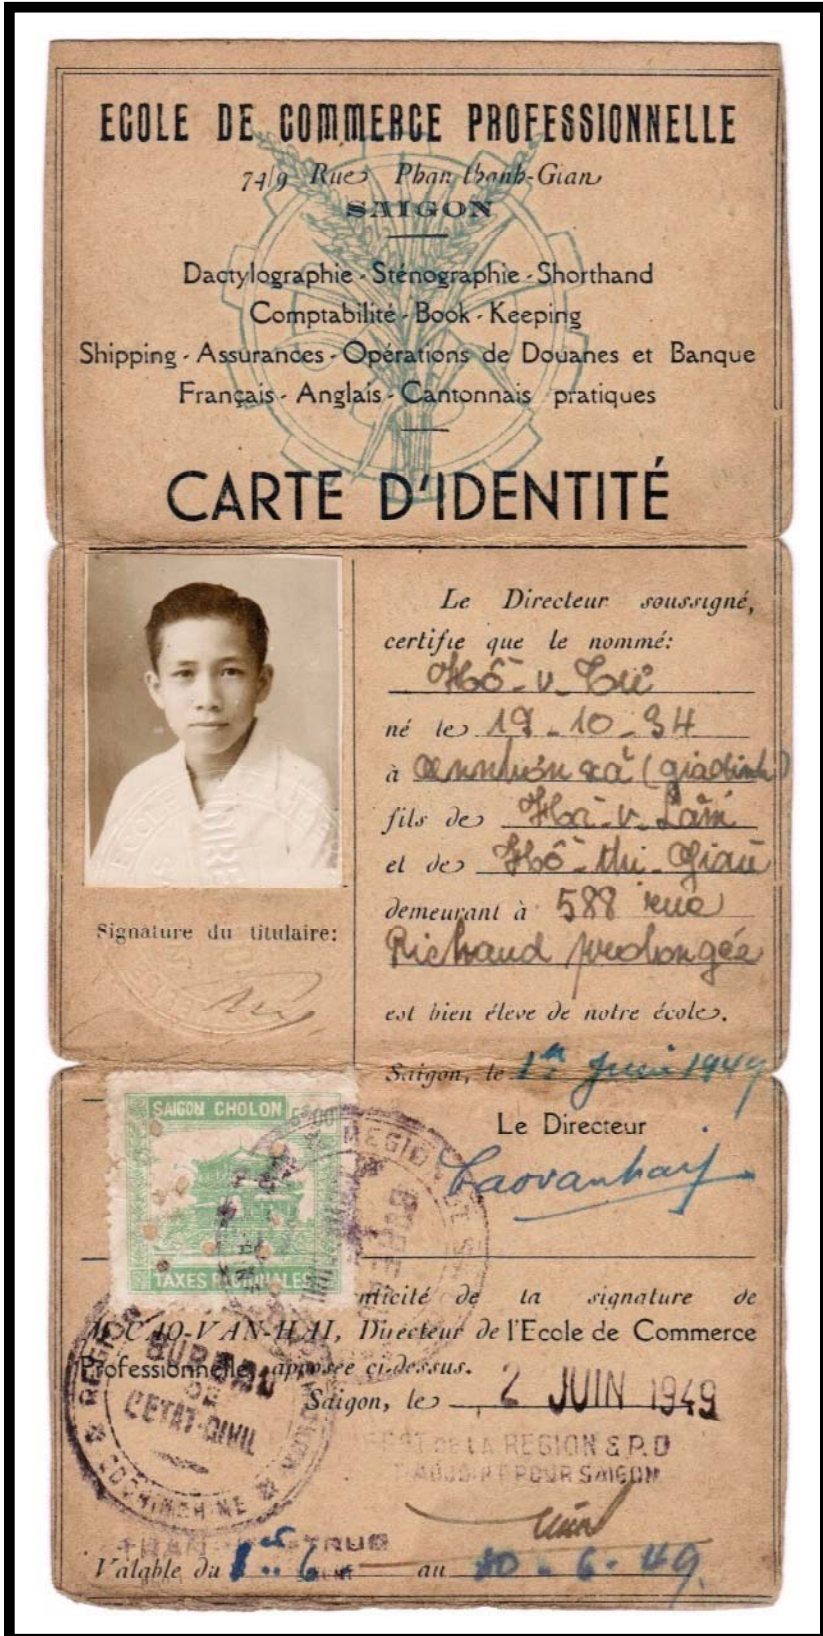 ECOLE DE COMMERCE PROFESSIONNELLE
74/9 Rue Phan thanh-Gian
SAIGON
Dactylographie - Sténographie - Shorthand
Comptabilité - Book - Keeping
Shipping - Assurances - Opérations de Douanes et Banque
Français - Anglais - Cantonnais pratiques
CARTE D'IDENTITÉ
Le Directeur soussigné,
certifie que le nommé:
Hồ - v - 
né le 19 - 10 - 34
à xã (giadinh)
fils de - v - 
et de Hồ - thi - Giàu
demeurant à 588 rue
Richaud prolongée
est bien éleve de notre école.
Signature du titulaire:
Saigon, le 1er Juin 1949
Le Directeur
Caovanhai
SAIGON CHOLON
TAXES REGIONALES
de la signature de
CAO-VAN-HAI, Directeur de l'Ecole de Commerce
Professionnelle, apposée ci-dessus.
Saigon, le 2 JUIN 1949
REGION
BUREAU
DE
L'ETAT-CIVIL
COCHINCHINE
DE LA REGION S.P.D
POUR SAIGON
Valable du 1er - 6 au 30 - 6 - 49.